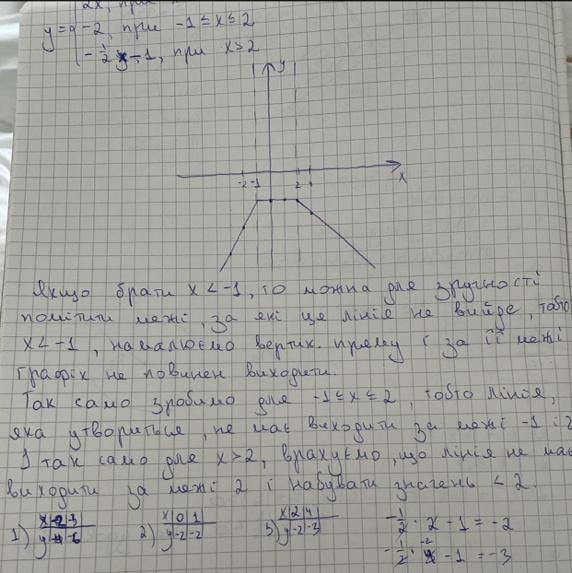 2x, при
y = { -2, при -1 ≤ x ≤ 2
-1/2 x - 1, при x > 2
y
-2 -1 2
x
Якщо брати x < -1, то можна для зручності
помітити межі, за які ця лінія не вийде, тобто
x < -1, намалюємо вертик. пряму і за її межі
графік не повинен виходити.
Так само зробимо для -1 ≤ x ≤ 2, тобто лінія,
яка утвориться, не має виходити за межі -1 і 2
І так само для x > 2, врахуємо, що лінія не має
виходити за межі 2 і набувати значень < 2.
1) x -2 -3
y -4 -6
2) x 0 1
y -2 -2
3) x 2 4
y -2 -3
-1/2 · 2 - 1 = -2
-1/2 · 4 - 1 = -3